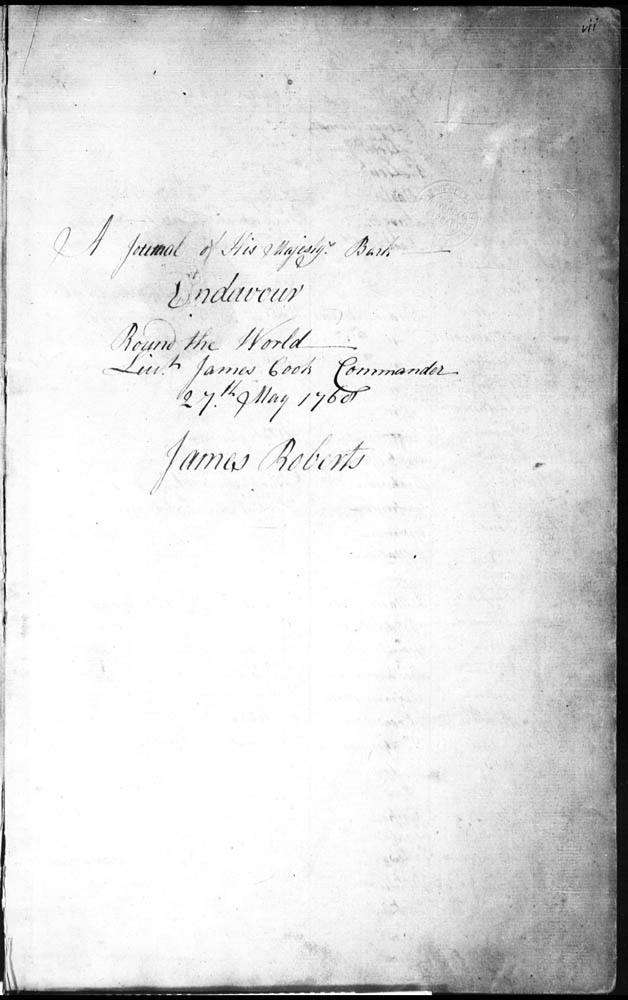 vii
A Journal of His Majestys. Bark
Endavour
Round the World
Lieut. James Cook Commander
27th. May 1768
James Roberts